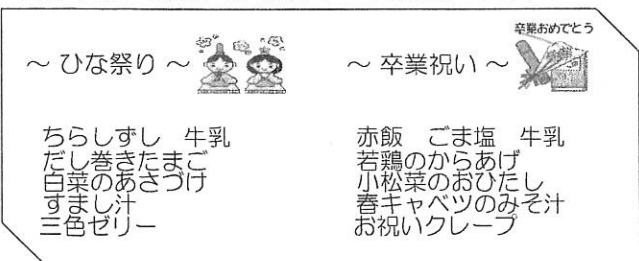 ～ ひな祭り ～
ちらしずし　牛乳
だし巻きたまご
白菜のあさづけ
すまし汁
三色ゼリー
卒業おめでとう
～ 卒業祝い ～
赤飯　ごま塩　牛乳
若鶏のからあげ
小松菜のおひたし
春キャベツのみそ汁
お祝いクレープ